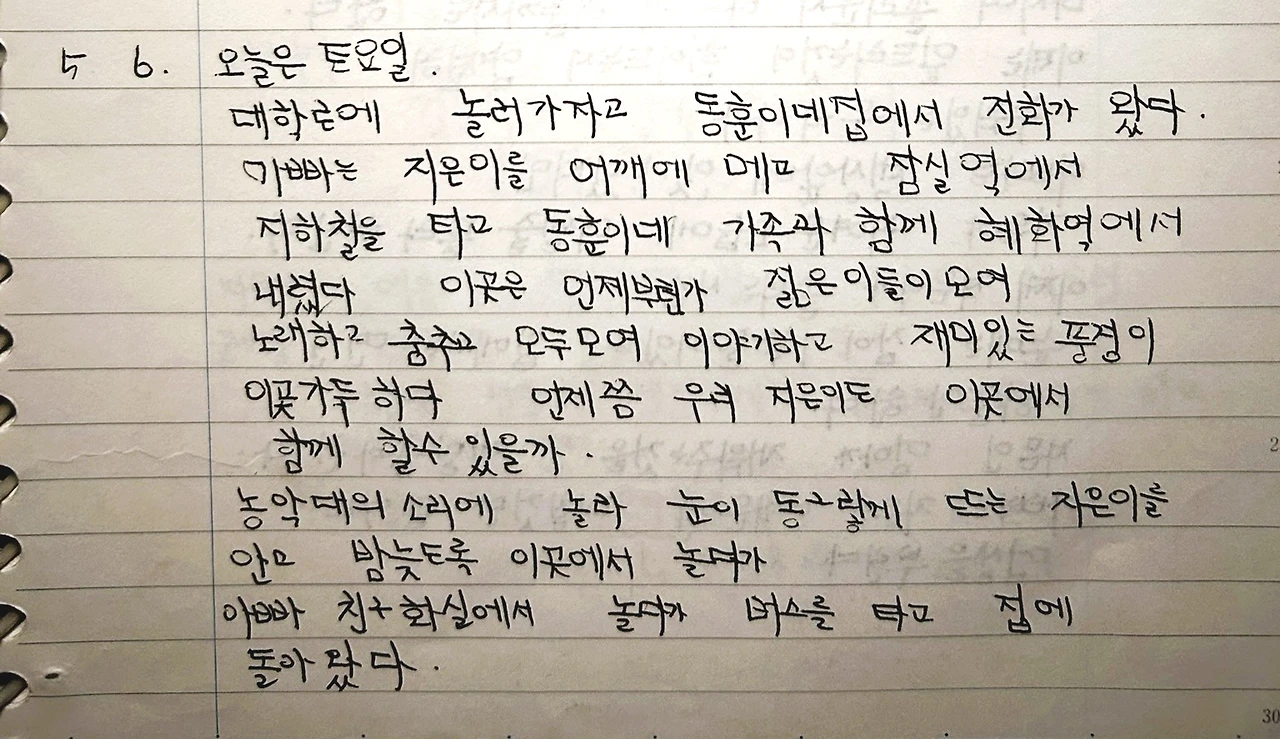 5 6. 오늘은 토요일.
대학로에 놀러가자고 동훈이네집에서 전화가 왔다.
아빠는 지은이를 어깨에 메고 잠실역에서
지하철을 타고 동훈이네 가족과 함께 혜화역에서
내렸다 이곳은 언제부턴가 젊은이들이 모여
노래하고 춤추고 모두모여 이야기하고 재미있는 풍경이
이곳가득 하다 언제쯤 우리 지은이도 이곳에서
함께 할수 있을까.
농악대의 소리에 놀라 눈이 동그랗게 뜨는 지은이를
안고 밤늦도록 이곳에서 놀다가
아빠 친구 화실에서 놀다가 버스를 타고 집에
돌아 왔다.
30